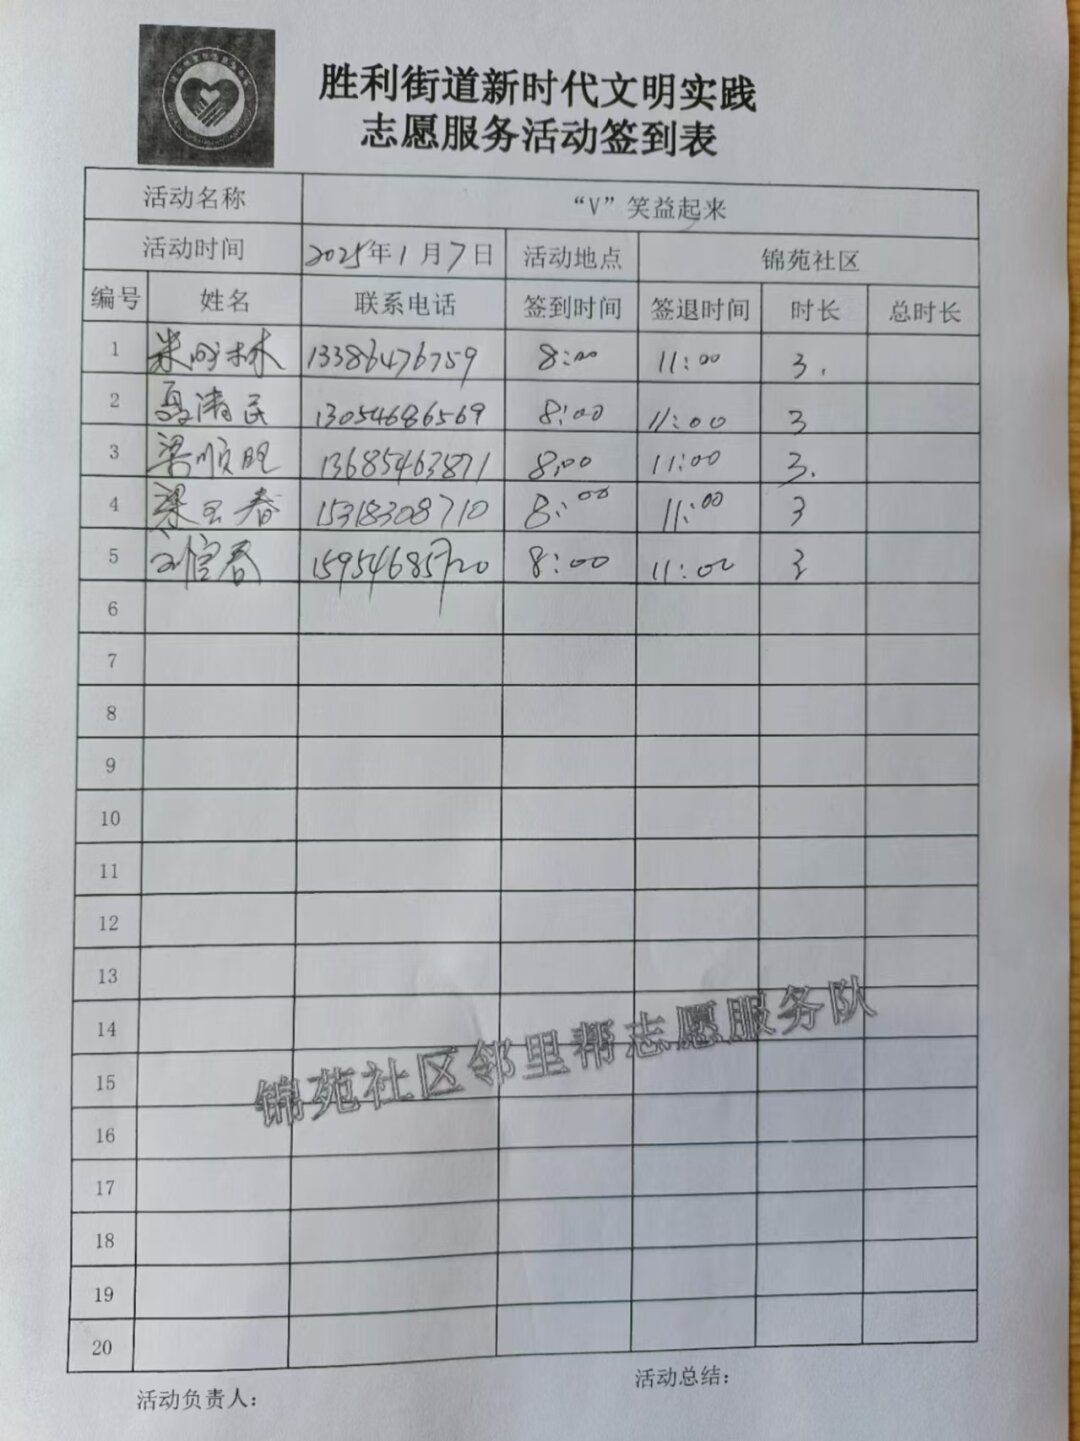 胜利街道新时代文明实践
志愿服务活动签到表
活动名称 “V”笑益起来
活动时间 2025年1月7日 活动地点 锦苑社区
编号 姓名 联系电话 签到时间 签退时间 时长 总时长
1 13386476759 8:00 11:00 3.
2 聂清民 13054686569 8:00 11:00 3
3 梁顺 13685463871 8:00 11:00 3.
4 梁玉春 15318308710 8:00 11:00 3
5 春 15954685720 8:00 11:00 3
6
7
8
9
10
11
12
13
14
15
锦苑社区邻里帮志愿服务队
16
17
18
19
20
活动负责人： 活动总结：